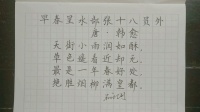 早春呈水部张十八员外
唐·韩愈
天街小雨润如酥,
草色遥看近却无。
最是一年春好处,
绝胜烟柳满皇都